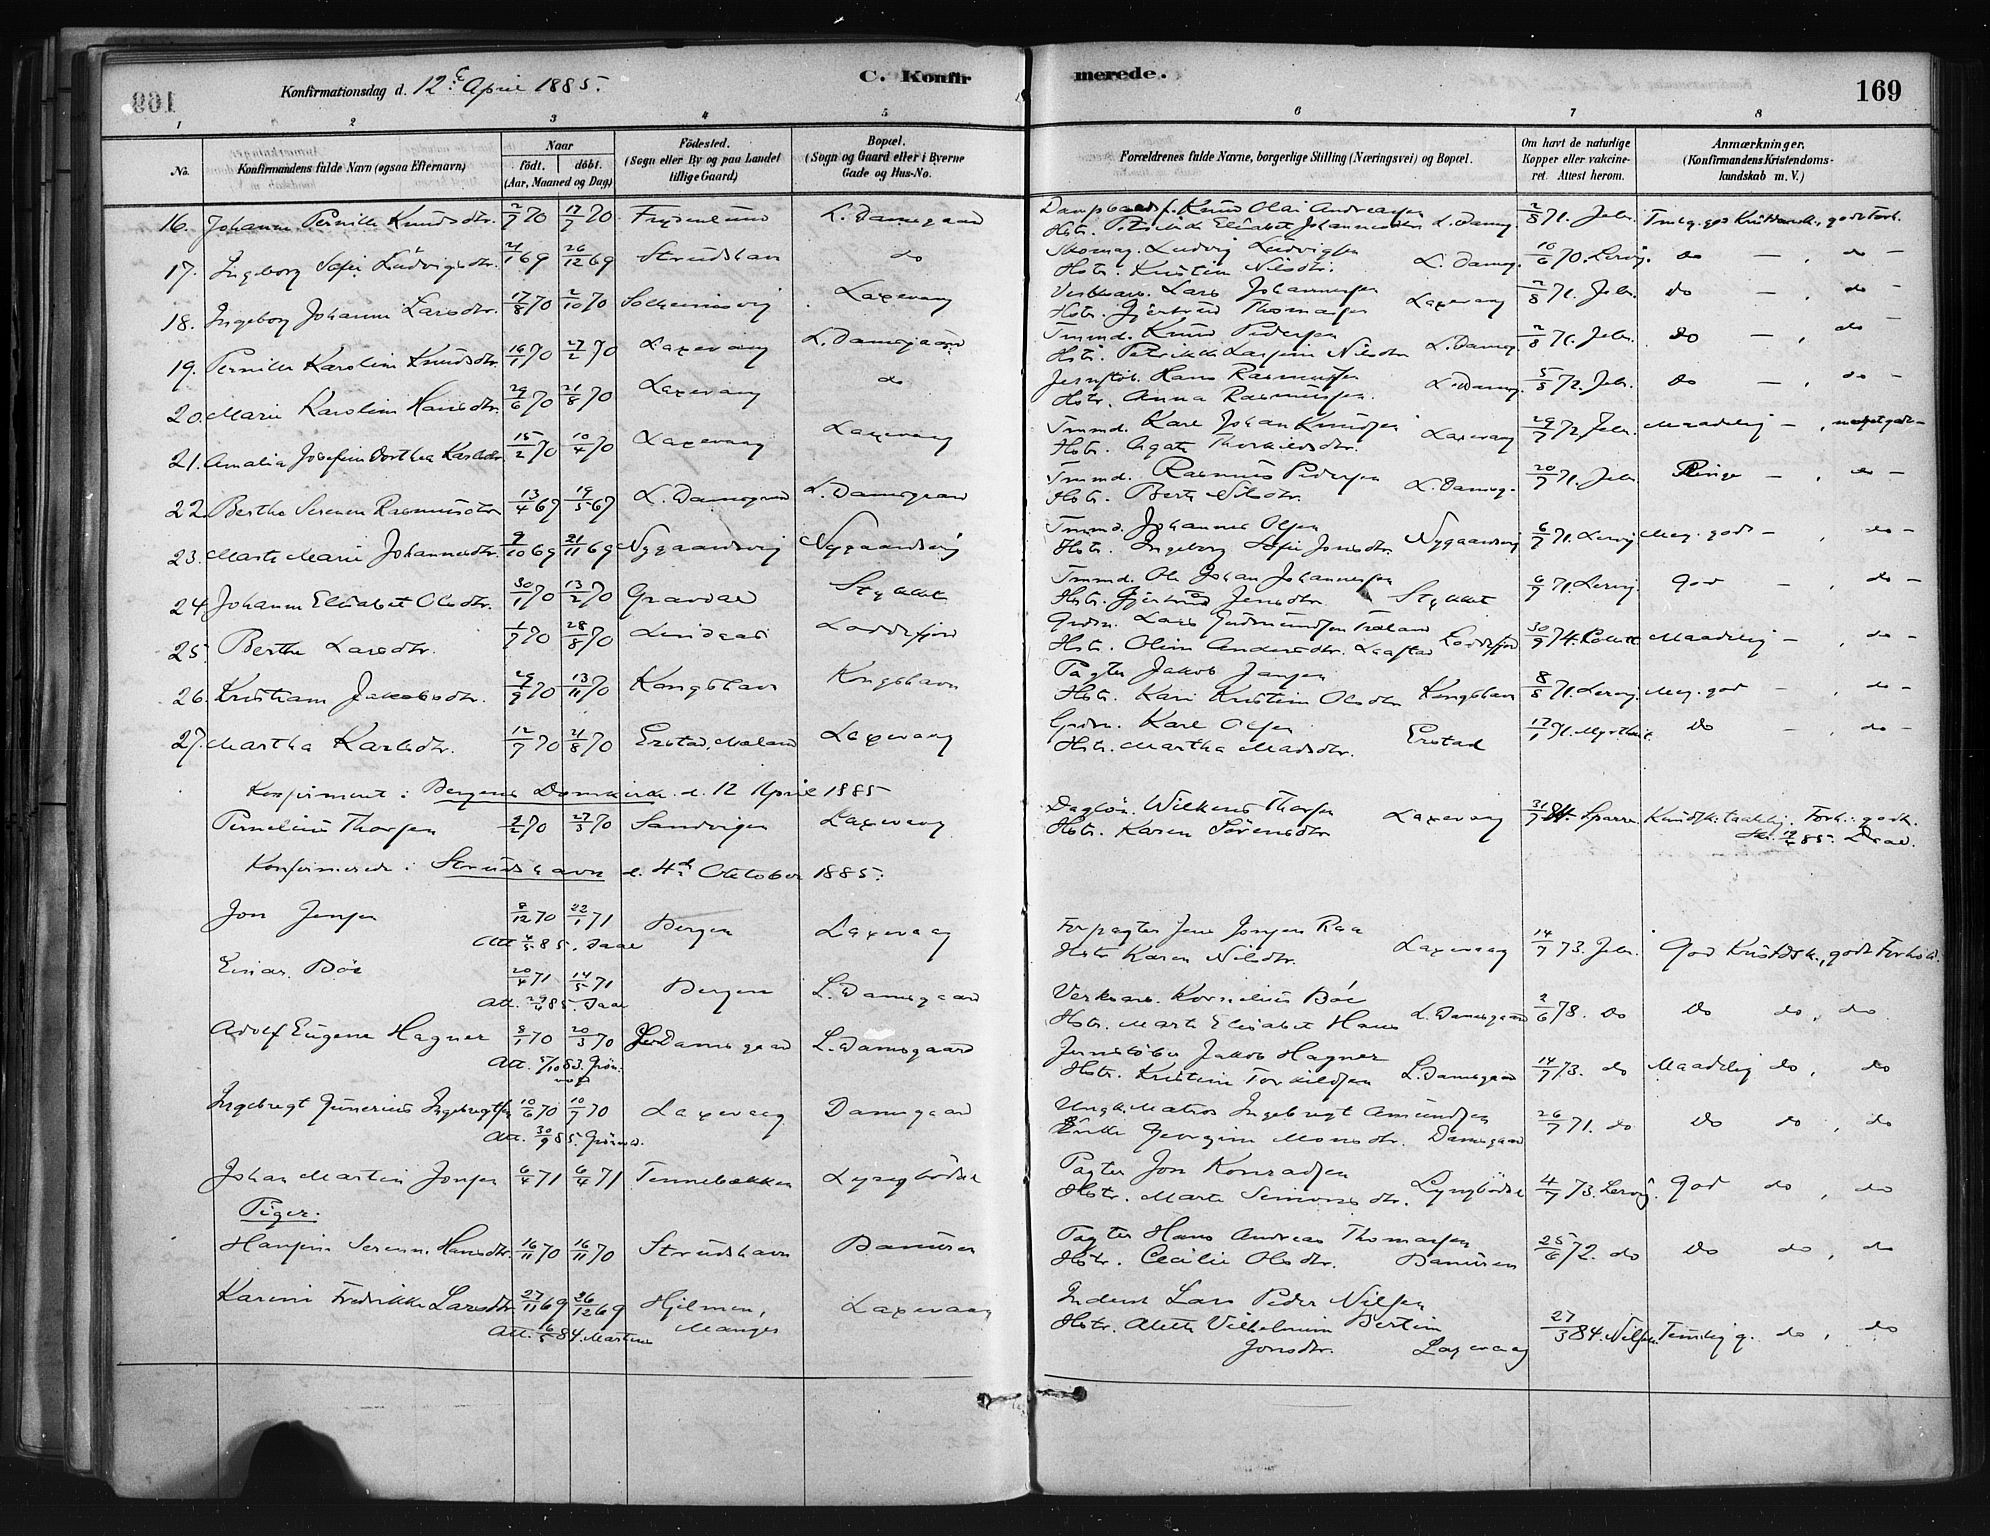 Konfirmationsdag d. 12te April 1885.
C. Konfir
merede.
169
1 2 3 4 5 6 7 8
No.
Konfirmandens fulde Navn (ogsaa Efternavn)
Naar
födt. döbt.
(Aar, Maaned og Dag)
Födested.
(Sogn eller By og paa Landet
tillige Gaard)
Bopæl.
(Sogn og Gaard eller i Byerne
Gade og Hus-No.
Forældrenes fulde Navne, borgerlige Stilling (Næringsvei) og Bopæl.
Om havt de naturlige
Kopper eller vakcine-
ret. Attest herom.
Anmærkninger,
(Konfirmandens Kristendoms-
kundskab m. V.)
16. Johanne Pernille Knudsdtr. 2/7 70 17/7 70 L. Damsgaard Knud Olai Andreasen
Hstr. Elisabet Johannesdtr L. Damsg. 2/8 71. Jebs.
17. Ingeborg Sofie Ludvigsdtr. 21/1 69 26/12 69 Strudshavn do Skomag. Ludvig Ludvigsen
Hstr. Kristin Nilsdtr. L. Damsg. 10/6 70. Lervig. do — , do —
18. Ingeborg Johanne Larsdtr. 17/8 70 2/10 70 Solheimsvig Laxevaag Lars Johannesen
Hstr. Gjertrud Thomasen Laxevaag 2/8 71. Jebs. do — , do —
19. Pernille Karoline Knudsdtr. 16/1 70 27/2 70 Laxevaag L. Damsgaard Tmmd. Knud Pedersen
Hstr. Nilsdtr L. Damsg. 2/8 71. Jebs. do — , do —
20. Marie Karoline Hansdtr. 29/6 70 21/8 70 Laxevaag do Jernstöb. Hans Rasmussen
Hstr. Anna Rasmussen. L. Damsg. 5/8 72. Jebs. do — , do —
21. Amalia Josefine Dorthea Karlsdtr 15/2 70 10/4 70 Laxevaag Laxevaag Tmmd. Karl Johan Knudsen
Hstr. Agate Thorkildsdtr. Laxevaag 29/7 72. Jebs. Maadelig — , meget godt —
22. Berthe Serene Rasmusdtr 13/4 67 19/5 67 L. Damsgaard L. Damsgaard Tmmd. Rasmus Pedersen
Hstr. Berte Nilsdtr. L. Damsg. 20/7 71. Jebs. Ringe — , do —
23. Marte Marie Johannesdtr. 9/10 69 21/11 69 Nygaardsvig Nygaardsvig Tmmd. Johannes Olsen
Hstr. Ingeborg Sofie Jonsdtr Nygaardsvig 6/7 71. Lervig Meg. godt — , do —
24. Johanne Elisabet Olsdtr. 30/1 70 13/2 70 Gravdal Stykket Tmmd. Ole Johan Johannesen
Hstr. Gjertrud Jensdtr. Stykket 6/7 71. Lervig. God — , do —
25. Berthe Larsdtr. 1/7 70 28/8 70 Loddefjord Gbdm. Lars Gudmundsen
Hstr. Oline Andersdtr. Loddefjord 30/9 74. Maadelig — , do —
26. Kristiane Jakobsdtr. 29/9 70 13/11 70 Kongshavn Kongshavn Pagter Jakob Jansen
Hstr. Kari Kristine Olsdtr Kongshavn 8/8 71. Lervig. Meg. god — , do —
27. Martha Karlsdtr. 12/7 70 21/8 70 Erstad, Maland Laxevaag Gbdm. Karl Olsen
Hstr. Martha Madsdtr. Erstad 17/1 71. do — , do —
Konfirmeret i Bergens Domkirke d. 12 April 1885
Pernelius Thorsen 9/2 70 27/3 70 Sandvigen Laxevaag Daglön. Wilkens Thorsen
Hstr. Karen Sörensdtr Laxevaag 31/7 84. Sparre Kundsk. taalelig. Forh. godt.
12/4 85.
Konfirmerede i Strudshavn d. 4de Oktober 1885:
Jon Jensen 8/12 70 22/1 71 Bergen Laxevaag Forpagter Jens Jonsen Raa
Att. 4/5 85. Daae
Hstr Karen Nilsdtr. Laxevaag 14/7 73. Jebs. God Kristdsk., godt Forhold.
Einar Böe 20/4 71 14/5 71 Bergen L. Damsgaard Kornelius Böe
Att. 29/4 85. Daae
Hstr. Marte Elisabet Hans L. Damsgaard 2/6 78. do Do do, do
Adolf Eugene Hagner 8/1 70 20/3 70 L. Damsgaard L. Damsgaard Jernstöber Jakob Hagner
Hstr. Kristine Torkildsen L. Damsgaard 14/7 73. do Maadelig do, do
Ingebregt Gunerius Ingebregtsen 10/6 70 10/7 70 Laxevaag Damsgaard Ungk. Matros Ingebregt Amundsen
Att. 30/9 85.
Enke Georgine Monsdtr. Damsgaard 26/7 71. do Do do, do
Johan Martin Jonsen 6/4 71 6/4 71 Tennebekken Lyngbödal Pagter Jon Konradsen
Hstr. Marte Simonsdtr. Lyngbödal 4/7 73. Lervig. God do, do
Piger:
Hansine Serene Hansdtr. 16/11 70 16/11 70 Strudshavn Pagter Hans Andreas Thomassen
Hstr. Cecilie Olsdtr. 25/6 72. do Do do, do
Karine Fredrikke Larsdtr. 27/11 69 26/12 69 Hjelmen, Laxevaag Inderst Lars Peder Nilsen
Att. 6/5 84. Martens Manger
Hstr. Alette Vilhelmine Bertine
Jonsdtr. Laxevaag 27/3 84. Nilsen. Temlig g. do, do